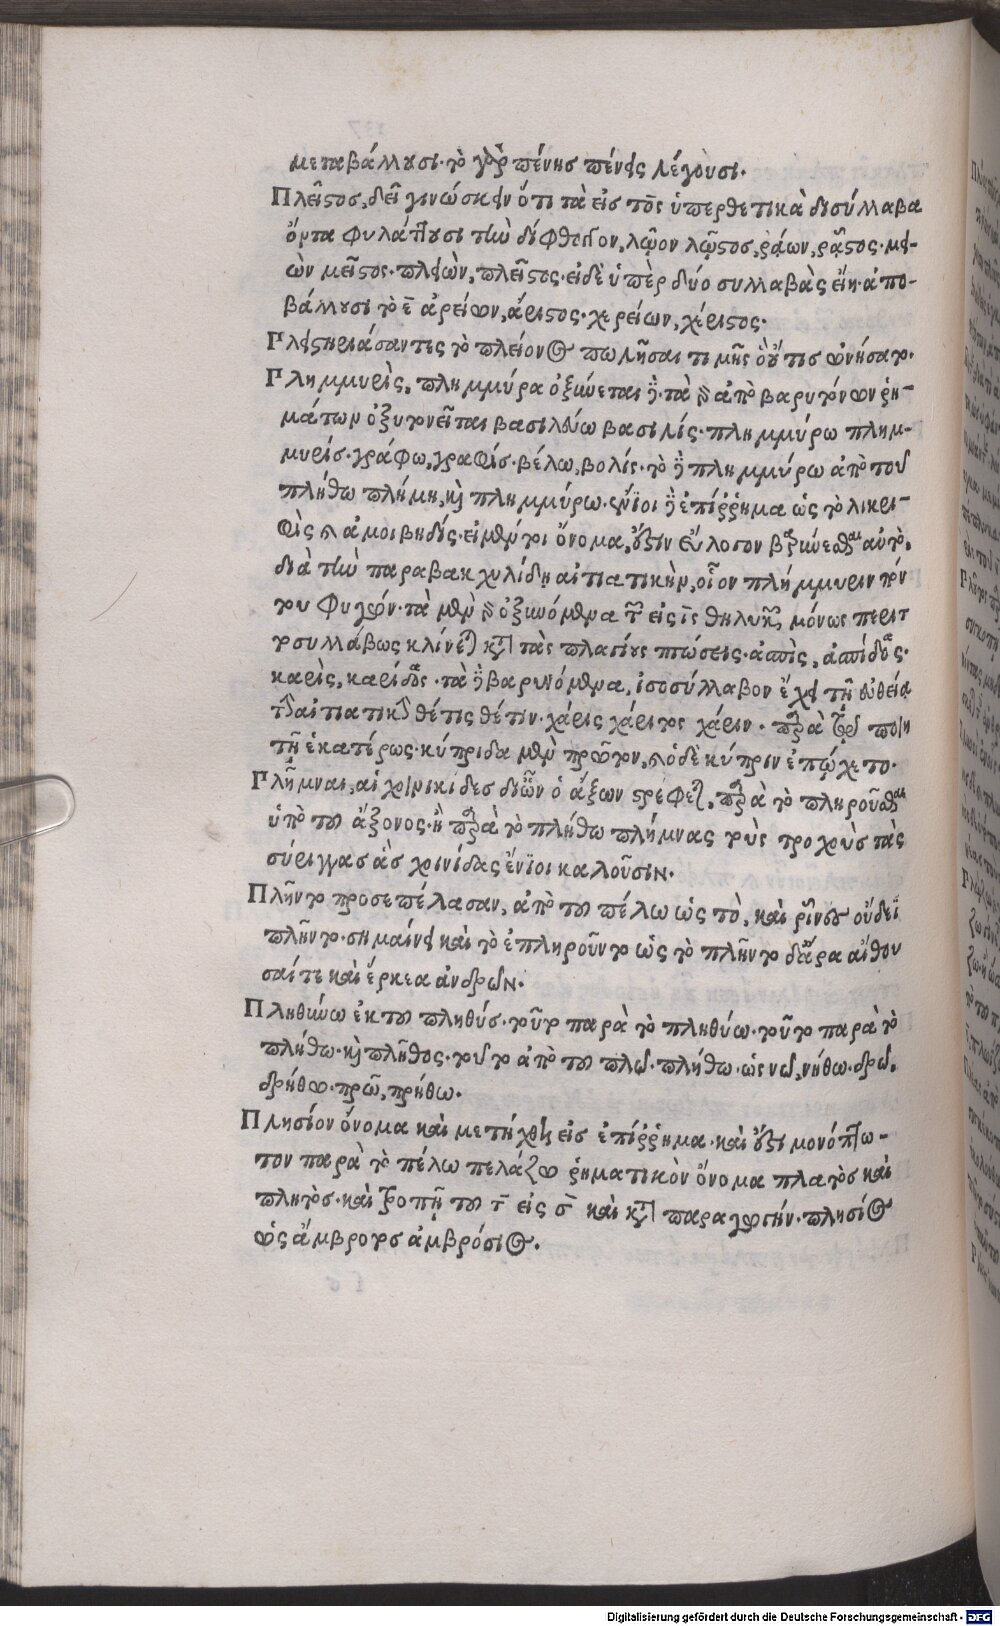 μεταβάλλουσι· τὸ γὰρ πένης πένεις λέγουσι.
Πλεῖστος, δεῖ γινώσκειν ὅτι τὰ εἰς τος ὑπερθετικὰ δισύλλαβα
ὄντα φυλάττουσι τὴν δίφθογγον, λῷον λῷστος, ῥάων, ῥᾷστος· μει-
ὼν μεῖστος· πλειὼν, πλεῖστος· εἰ δὲ ὑπὲρ δύο συλλαβὰς εἴη· ἀπο-
βάλλουσι τὸ ε ἀρείων, ἄριστος· χερείων, χέριστος·
Πλειστηριάσαντες τὸ πλείονος πωλῆσαι τιμῆς ὃ οὔτις ὠνήσατο.
Πλημμυρὶς, πλημμύρα ὀξύνεται δὲ· τὰ γὰρ ἀπὸ βαρυτόνων ῥη-
μάτων ὀξυτονεῖται βασιλεύω βασιλίς· πλημμύρω πλημ-
μυρίς· γράφω, γραφίς· βέλω, βολίς· τὸ δὲ πλημμύρω ἀπὸ τοῦ
πλήθω πλήμη, καὶ πλημμύρω· ἔνιοι δὲ ἐπίρρημα ὡς τὸ λικρι-
φὶς καὶ ἀμοιβηδίς· εἰ μέντοι ὄνομα, οὔστιν εὔλογον βαρύνεσθαι αὐτὸ,
διὰ τὴν παρὰ βακχυλίδῃ αἰτιατικὴν, οἷον πλήμμυριν πόν
του φυγών· τὰ μὲν γὰρ ὀξυνόμενα τῶν εἰς ις θηλυκῶν, μόνως περιτ
τοσυλλάβως κλίνεται κατὰ τὰς πλαγίους πτώσεις· ἀσπὶς, ἀσπίδος·
καρὶς, καρίδος· τὰ δὲ βαρυνόμενα, ἰσοσύλλαβον ἔχει τῇ εὐθείᾳ
τὴν αἰτιατικὴν θέτις θέτιν· χάρις χάριτος χάριν· παρὰ τῷ ποιη
τῇ ἑκατέρως· κύπριδα μὲν πρῶτον, καὶ ὁ δὲ κύπριν ἐπῴχετο·
Πλῆμναι, αἱ χοινικίδες δι' ὧν ὁ ἄξων στρέφεται, παρὰ τὸ πληροῦσθαι
ὑπὸ τοῦ ἄξονος· ἢ παρὰ τὸ πλήθω πλήμνας τοὺς τροχοὺς τὰς
σύριγγας ἃς χοινίδας ἔνιοι καλοῦσιν.
Πλῆντο προσεπέλασαν, ἀπὸ τοῦ πέλω ὡς τὸ, καὶ ῥῖνον οὔδει
πλῆντο· σημαίνει καὶ τὸ ἐπληροῦντο ὡς τὸ πλῆντο δ' ἄρα αἴθου
σαί τε καὶ ἕρκεα ἀνδρῶν.
Πληθύνω ἐκ τοῦ πληθύς· τοῦτο παρὰ τὸ πληθύω· τοῦτο παρὰ τὸ
πλήθω· καὶ πλῆθος· τοῦτο ἀπὸ τοῦ πλῶ· πλήθω· ὡς νῶ, νήθω· δρῶ,
δρήθω· πρῶ, πρήθω.
Πλησίον ὄνομα καὶ μετήχθη εἰς ἐπίρρημα· καὶ οὔστι μονόπτω-
τον παρὰ τὸ πέλω πελάζω ῥηματικὸν ὄνομα πλατὸς καὶ
πλητὸς· καὶ τροπῇ τοῦ τ εἰς σ καὶ κατὰ παραγωγήν· πλησίος
ὡς ἄμβροτος ἀμβρόσιος.
Digitalisierung gefördert durch die Deutsche Forschungsgemeinschaft · DFG